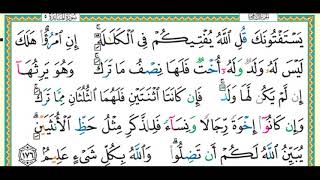 يَسْتَفْتُونَكَ قُلِ اللَّهُ يُفْتِيكُمْ فِي الْكَلَالَةِ ۚ إِنِ امْرُؤٌا هَلَكَ
لَيْسَ لَهُ وَلَدٌ وَلَهُ أُخْتٌ فَلَهَا نِصْفُ مَا تَرَكَ ۚ وَهُوَ يَرِثُهَا
إِن لَّمْ يَكُن لَّهَا وَلَدٌ ۚ فَإِن كَانَتَا اثْنَتَيْنِ فَلَهُمَا الثُّلُثَانِ مِمَّا تَرَكَ ۚ
وَإِن كَانُوا إِخْوَةً رِّجَالًا وَنِسَاءً فَلِلذَّكَرِ مِثْلُ حَظِّ الْأُنثَيَيْنِ ۗ
يُبَيِّنُ اللَّهُ لَكُمْ أَن تَضِلُّوا ۗ وَاللَّهُ بِكُلِّ شَيْءٍ عَلِيمٌ ١٧٦